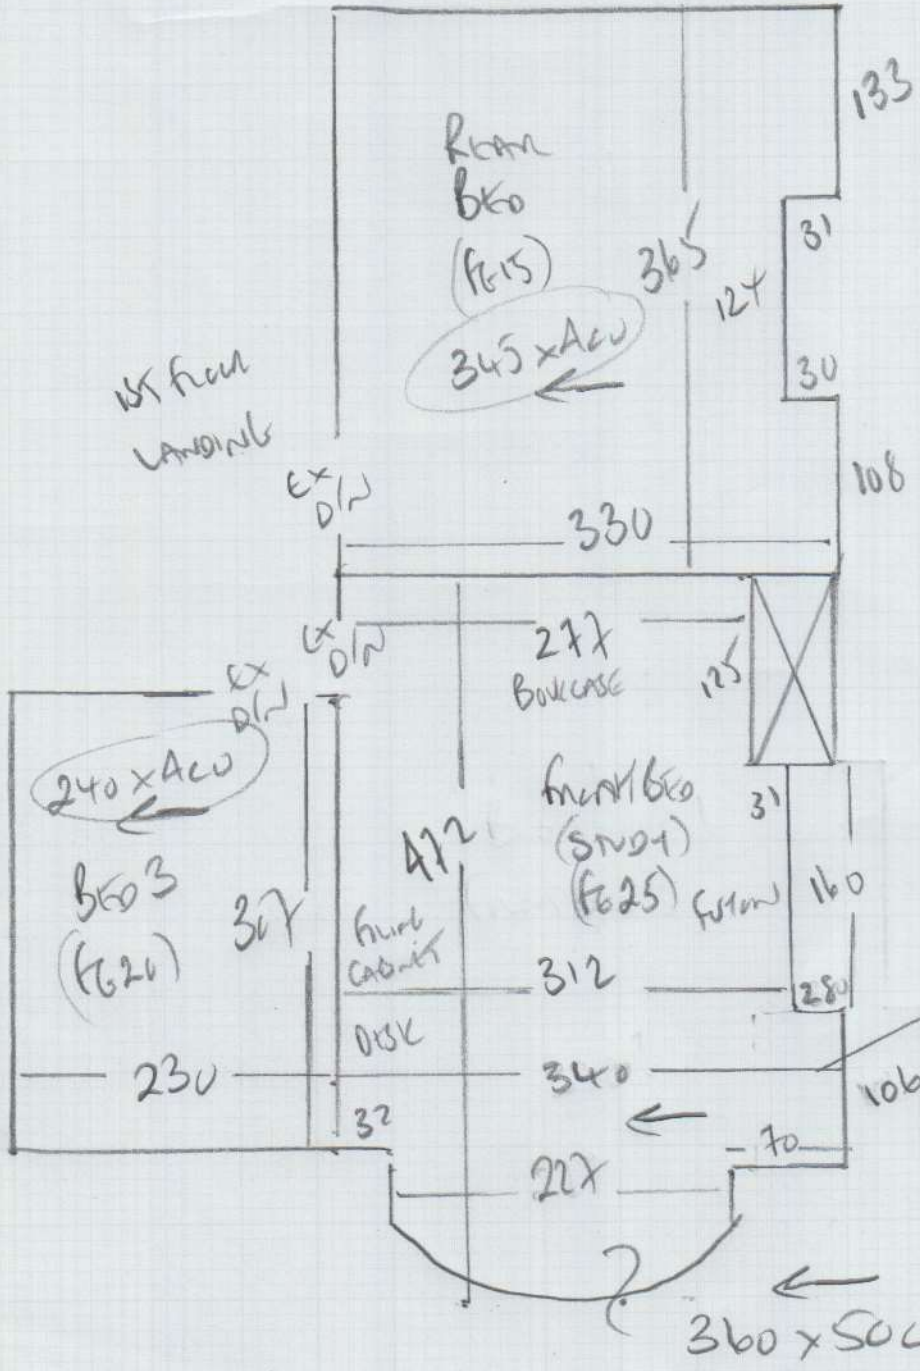 133
REAR
BED
(FE15)
365
31
124
345 x ACU
30
1ST FLOOR
LANDING
108
EX
D/N
330
EX
D/N
277
BOOKCASE
125
EX
D/N
240 x ACU
FRONT BED
(STUDY)
(FE25)
31
472
FUTON
160
BED 3
(FE20)
307
FILING
CABINET
312
280
DESK
230
340
106
32
70
227
?
360 x 500